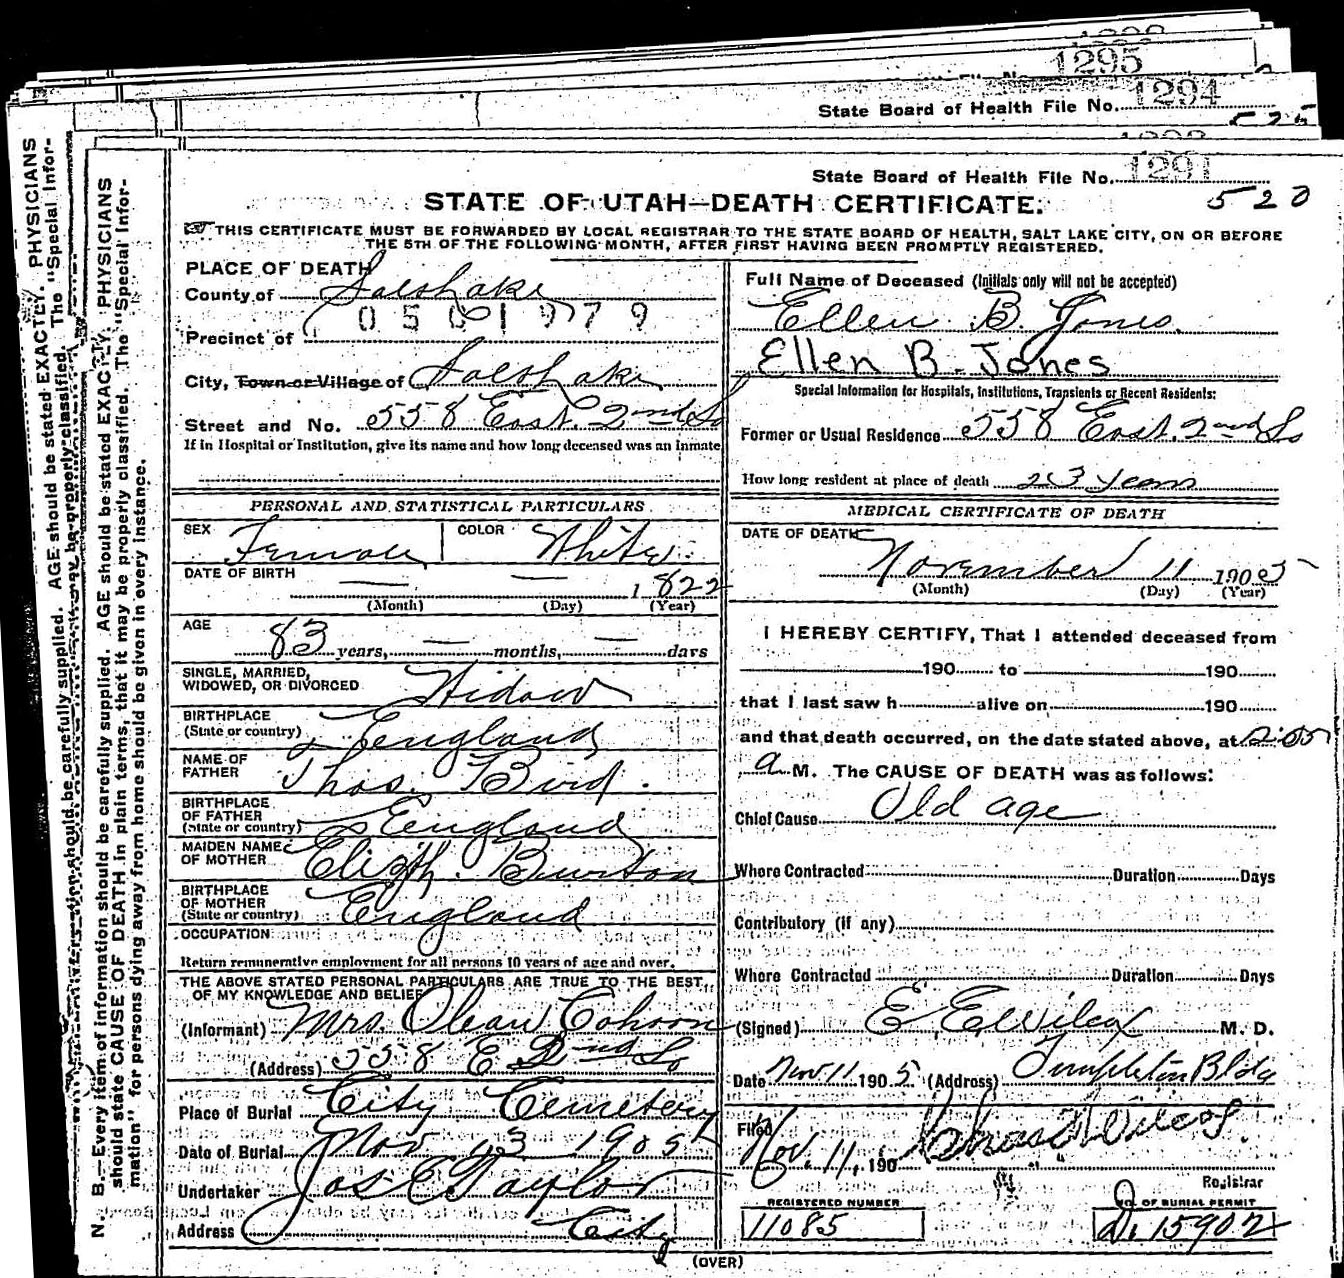 1295
1294
State Board of Health File No.
525
1291
State Board of Health File No.
520
STATE OF UTAH—DEATH CERTIFICATE.
THIS CERTIFICATE MUST BE FORWARDED BY LOCAL REGISTRAR TO THE STATE BOARD OF HEALTH, SALT LAKE CITY, ON OR BEFORE
THE 5TH OF THE FOLLOWING MONTH, AFTER FIRST HAVING BEEN PROMPTLY REGISTERED.
PLACE OF DEATH
County of Salt Lake
0501979
Precinct of
City, Town or Village of Salt Lake
Street and No. 558 East. 2nd So
If in Hospital or Institution, give its name and how long deceased was an inmate
PERSONAL AND STATISTICAL PARTICULARS
SEX Female COLOR White
DATE OF BIRTH — — 1822
(Month) (Day) (Year)
AGE
83 years, — months, — days
SINGLE, MARRIED,
WIDOWED, OR DIVORCED Widow
BIRTHPLACE
(State or country) England
NAME OF
FATHER Thos. Bird.
BIRTHPLACE
OF FATHER
(State or country) England
MAIDEN NAME
OF MOTHER Elizth. Burton
BIRTHPLACE
OF MOTHER
(State or country) England
OCCUPATION
Return remunerative employment for all persons 10 years of age and over.
THE ABOVE STATED PERSONAL PARTICULARS ARE TRUE TO THE BEST
OF MY KNOWLEDGE AND BELIEF
(Informant) Mrs. Cohoon
(Address) 558 E 2nd So
Place of Burial City Cemetery
Date of Burial Nov 13 1905
Undertaker Jos E. Taylor
Address City
Full Name of Deceased (Initials only will not be accepted)
Ellen B. Jones.
Ellen B. Jones
Special Information for Hospitals, Institutions, Transients or Recent Residents:
Former or Usual Residence 558 East. 2nd So
How long resident at place of death 23 years
MEDICAL CERTIFICATE OF DEATH
DATE OF DEATH
November 11 1905
(Month) (Day) (Year)
I HEREBY CERTIFY, That I attended deceased from
190 to 190
that I last saw h alive on 190
and that death occurred, on the date stated above, at 2:05
a M. The CAUSE OF DEATH was as follows:
Chief Cause Old age
Where Contracted Duration Days
Contributory (if any)
Where Contracted Duration Days
(Signed) E. E. Wilcox M. D.
Date Nov 11 1905 (Address) Templeton Bldg
Filed
Nov. 11, 190 Wilcox.
Registrar
REGISTERED NUMBER
11085
NO. OF BURIAL PERMIT
D. 15902
(OVER)
N. B.—Every item of information should be carefully supplied. AGE should be stated EXACTLY. PHYSICIANS
should state CAUSE OF DEATH in plain terms, that it may be properly classified. The "Special Infor-
mation" for persons dying away from home should be given in every instance.